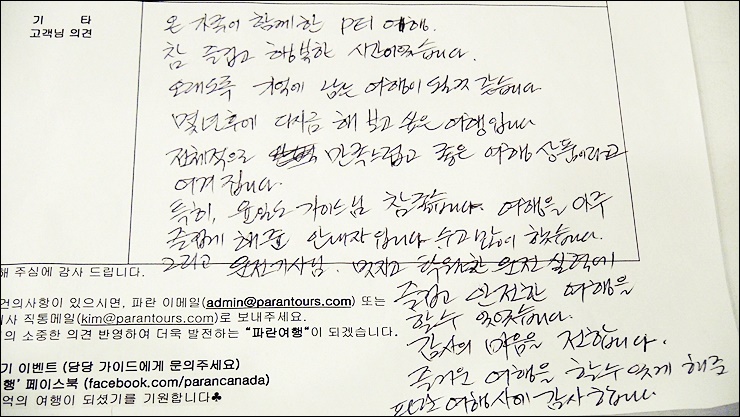 기 타
고객님 의견
온 가족이 함께한 PEI 여행.
참 즐겁고 행복한 시간이었습니다.
오래도록 기억에 남는 여행이 될것 같습니다.
몇년후에 다시금 해 보고 싶은 여행입니다
전체적으로 만족스럽고 좋은 여행 상품이라고
여겨 집니다.
특히, 가이드님 참 좋습니다. 여행을 아주
즐겁게 해준 안내자 입니다 수고 많이 했습니다.
그리고 운전기사님. 멋지고 탁월한 운전 실력에
즐겁고 안전한 여행을
할수 있었습니다.
감사의 마음을 전합니다.
즐거운 여행을 할수 있게 해준
파란 여행사에 감사합니다.
해 주심에 감사 드립니다.
건의사항이 있으시면, 파란 이메일(admin@parantours.com) 또는
사 직통메일(kim@parantours.com)로 보내주세요.
의 소중한 의견 반영하여 더욱 발전하는 "파란여행"이 되겠습니다.
기 이벤트 (담당 가이드에게 문의주세요)
행' 페이스북 (facebook.com/parancanada)
억의 여행이 되셨기를 기원합니다♣